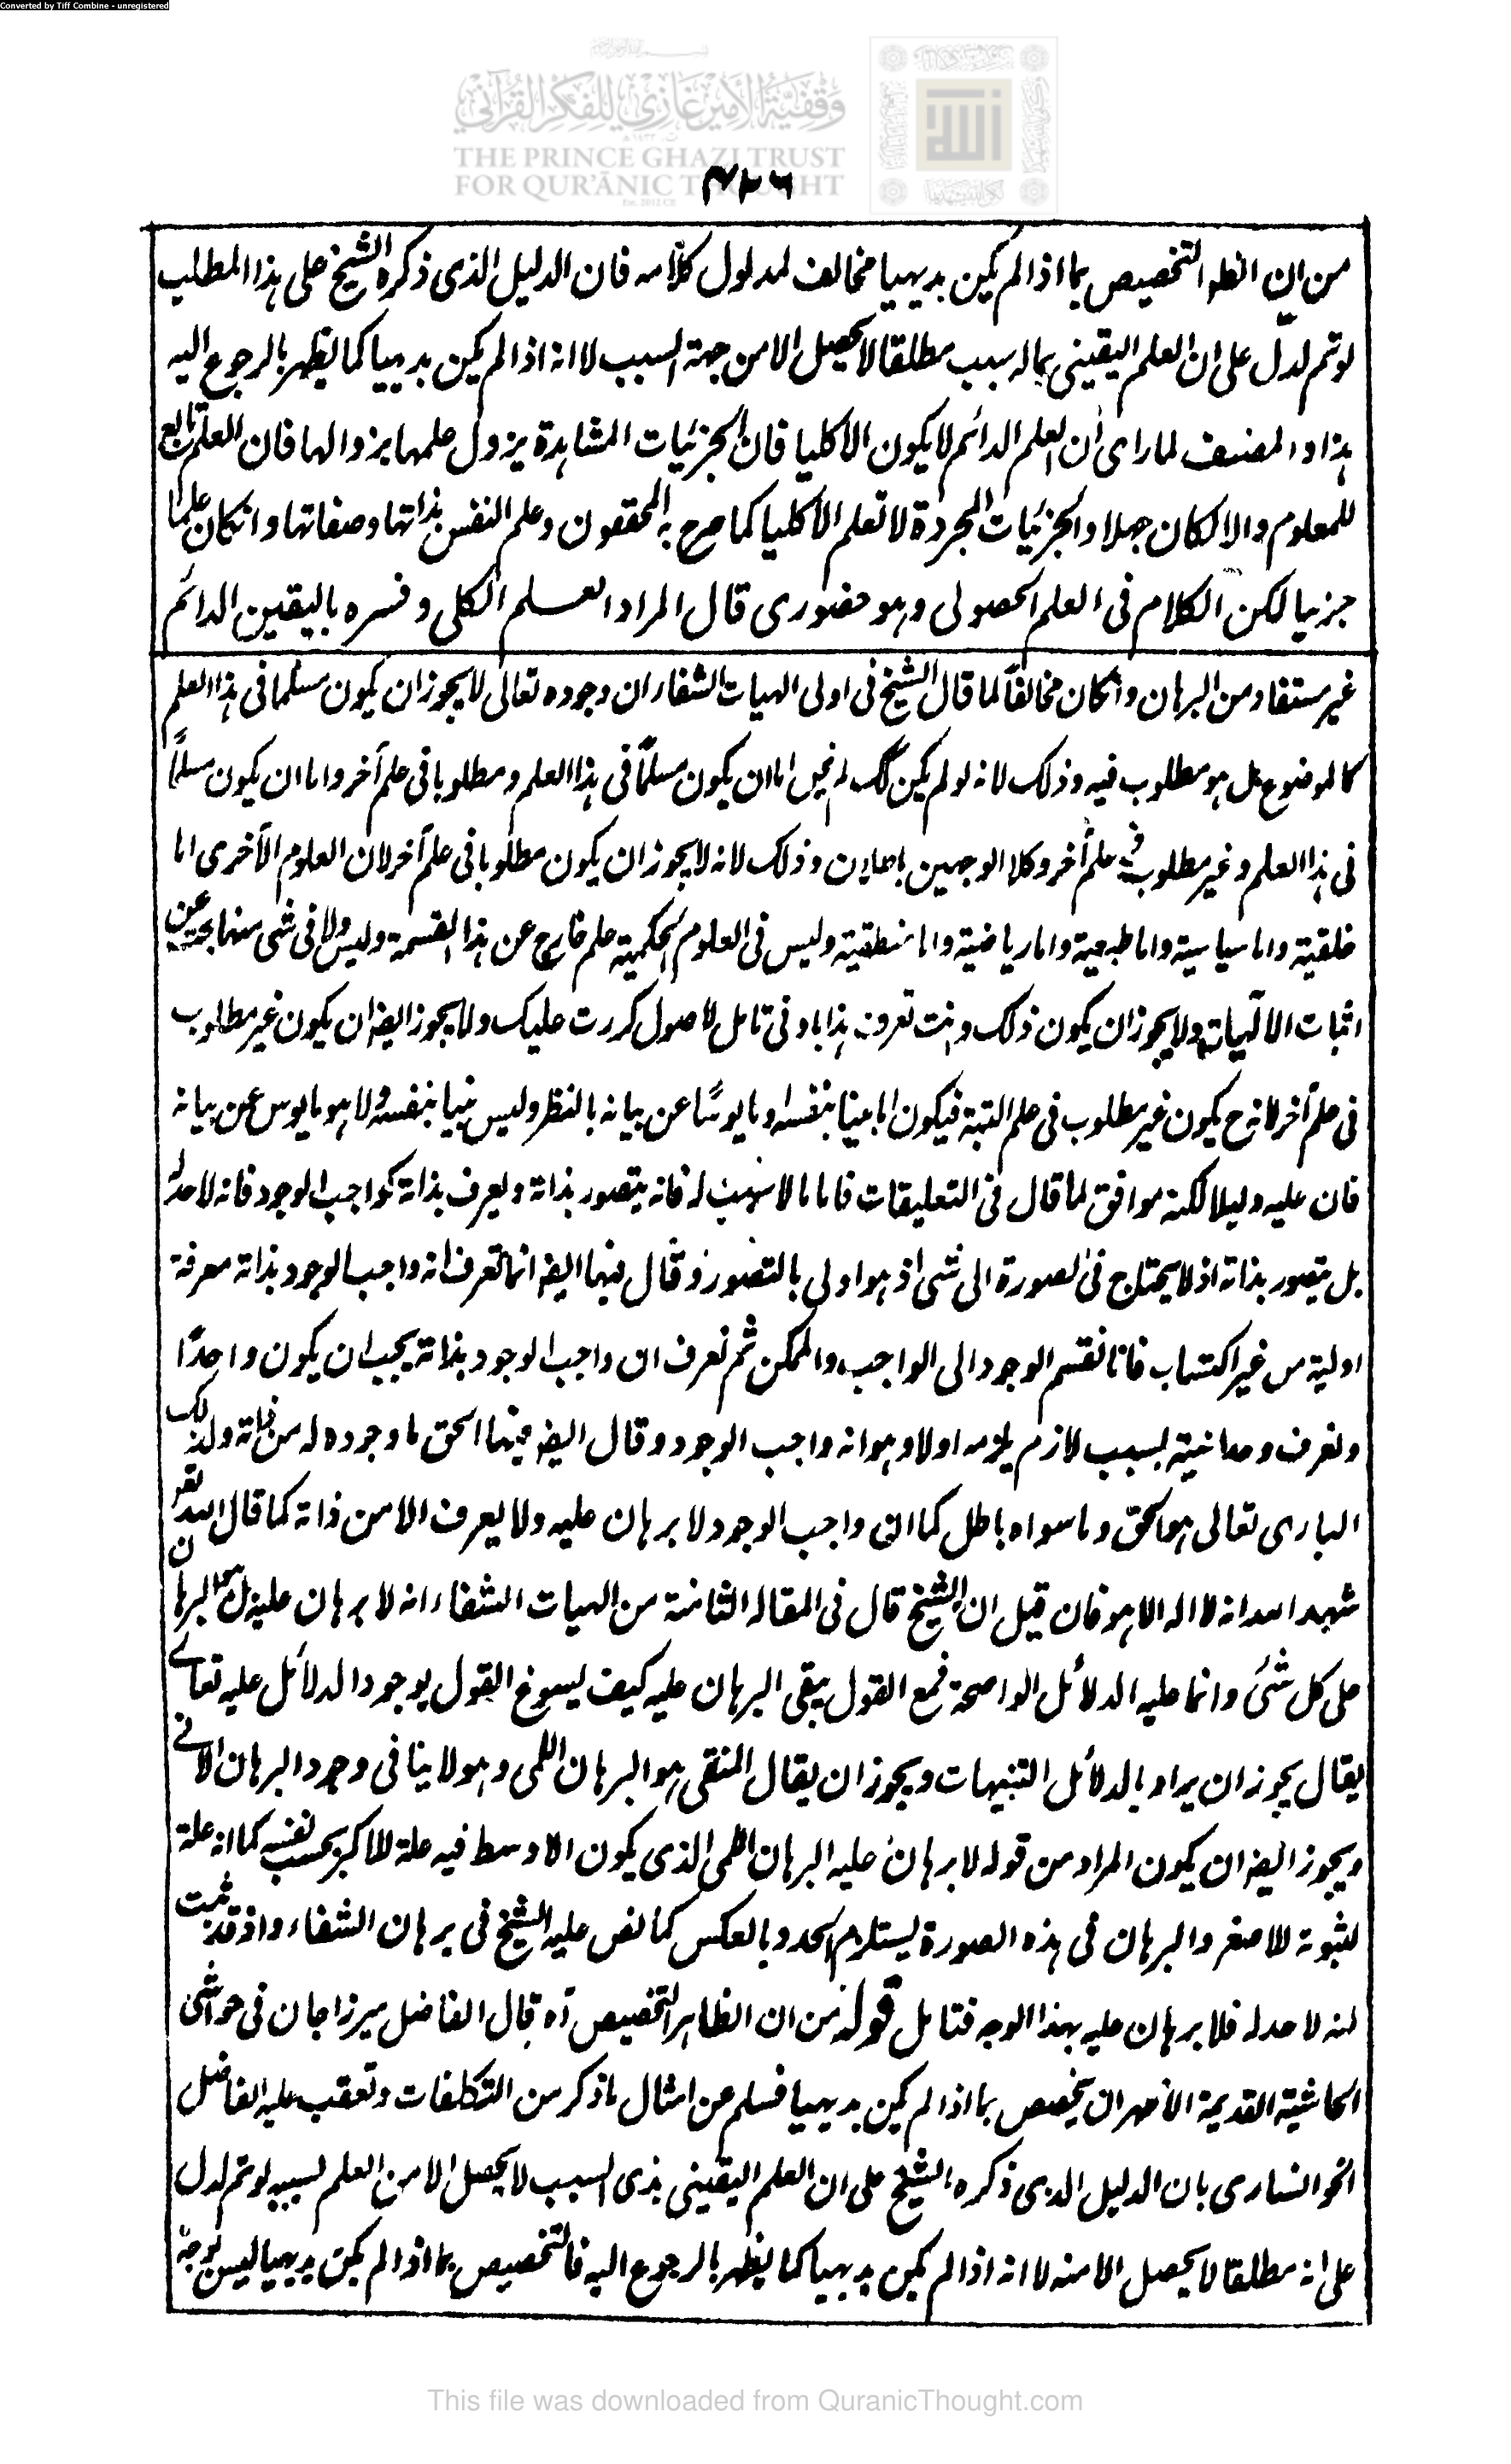 Converted by Tiff Combine - unregistered
وقفية الأمير غازي للفكر القرآني
THE PRINCE GHAZI TRUST
FOR QUR'ĀNIC THOUGHT
۴۲۶
من ان الظاهر التخصيص بما اذا لم يكن بديهيا مخالف لمدلول كلامه فان الدليل الذى ذكره الشيخ على هذا المطلب
لو تم لدل على ان العلم اليقينى بماله سبب مطلقا لا يحصل الا من جهة السبب لا انه اذا لم يكن بديهيا كما يظهر بالرجوع اليه
هذا والمصنف لما راى ان العلم الدائم لا يكون الا كليا فان الجزئيات المشاهدة يزول علمها بزوالها فان العلم تابع
للمعلوم والا لكان جهلا والجزئيات المجردة لا تعلم الا كليا كما صرح به المحققون وعلم النفس بذاتها وصفاتها وانكان علما
جزئيا لكن الكلام فى العلم الحصولى وهو حضورى قال المراد العلم الكلى وفسره باليقين الدائم
غير مستفاد من البرهان وانكان مخالفا لما قال الشيخ فى اولى الهيات الشفاء ان وجوده تعالى لا يجوز ان يكون مسلما فى هذا العلم
كالموضوع بل هو مطلوب فيه وذلك لانه لو لم يكن كك لم يخل اما ان يكون مسلمًا فى هذا العلم ومطلوبا فى علم آخر واما ان يكون مسلمًا
فى هذا العلم وغير مطلوب فى علم آخر وكلا الوجهين باطلان وذلك لانه لا يجوز ان يكون مطلوبا فى علم آخر لان العلوم الاخرى اما
خلقية واما سياسية واما طبعية واما رياضية واما منطقية وليس فى العلوم الحكمية علم خارج عن هذا القسمة وليس ولا فى شى منها بحث عن
اثبات الالهيات ولا يجوز ان يكون ذلك وانت تعرف هذا بادنى تامل لاصول كررت عليك ولا يجوز ايضا ان يكون غير مطلوب
فى علم آخر لانه ح يكون غير مطلوب فى علم البتة فيكون اما بينا بنفسه او مايوسًا عن بيانه بالنظر وليس بينا بنفسه ولا هو مايوس عن بيانه
فان عليه دليلا لكنه موافق لما قال فى التعليقات فاما ما لا سبب له فانه يتصور بذاته ويعرف بذاته كواجب الوجود فانه لا حد له
بل يتصور بذاته اذ لا يحتاج فى تصوره الى شى اذ هو اولى بالتصور وقال فيها ايضا انما نعرف انه واجب الوجود بذاته معرفة
اولية من غير اكتساب فانا نقسم الوجود الى الواجب والممكن ثم نعرف ان واجب الوجود بذاته يجب ان يكون واحدًا
ونعرف وحدانيته بسبب لازم يلزمه اولا وهو انه واجب الوجود وقال ايضا فيها الحق ما وجوده له من ذاته ولذلك
البارى تعالى هو الحق وما سواه باطل كما ان واجب الوجود لا برهان عليه ولا يعرف الا من ذاته كما قال الله تعر
شهد الله انه لا اله الا هو فان قيل ان الشيخ قال فى المقالة الثامنة من الهيات الشفاء انه لا برهان عليه بل هو البرهان
على كل شى وانما عليه الدلائل الواضحة فمع القول بنفى البرهان عليه كيف يسوغ القول بوجود الدلائل عليه تعالے
يقال يجوز ان يراد بالدلائل التنبيهات ويجوز ان يقال المنفى هو البرهان اللمى وهو لا ينافى وجود البرهان الانى
ويجوز ايضا ان يكون المراد من قوله لا برهان عليه البرهان اللمى الذى يكون الاوسط فيه علة للاكبر بحسب نفسه كما انه علة
لثبوته للاصغر والبرهان فى هذه الصورة يستلزم الحد وبالعكس كما نص عليه الشيخ فى برهان الشفاء واذ قد ثبت
انه لا حد له فلا برهان عليه بهذا الوجه فتامل قوله من ان الظاهر التخصيص آه قال الفاضل ميرزا جان فى حواشى
الحاشية القديمة الاظهر ان يخصص بما اذا لم يكن بديهيا فسلم عن امثال ما ذكر من التكلفات وتعقب عليه الفاضل
الخوانسارى بان الدليل الذى ذكره الشيخ على ان العلم اليقينى بذى السبب لا يحصل الا من العلم بسببه لو تم لدل
على انه مطلقا لا يحصل الا منه لا انه اذا لم يكن بديهيا كما يظهر بالرجوع اليه فالتخصيص بما اذا لم يكن بديهيا ليس بوجه
This file was downloaded from QuranicThought.com